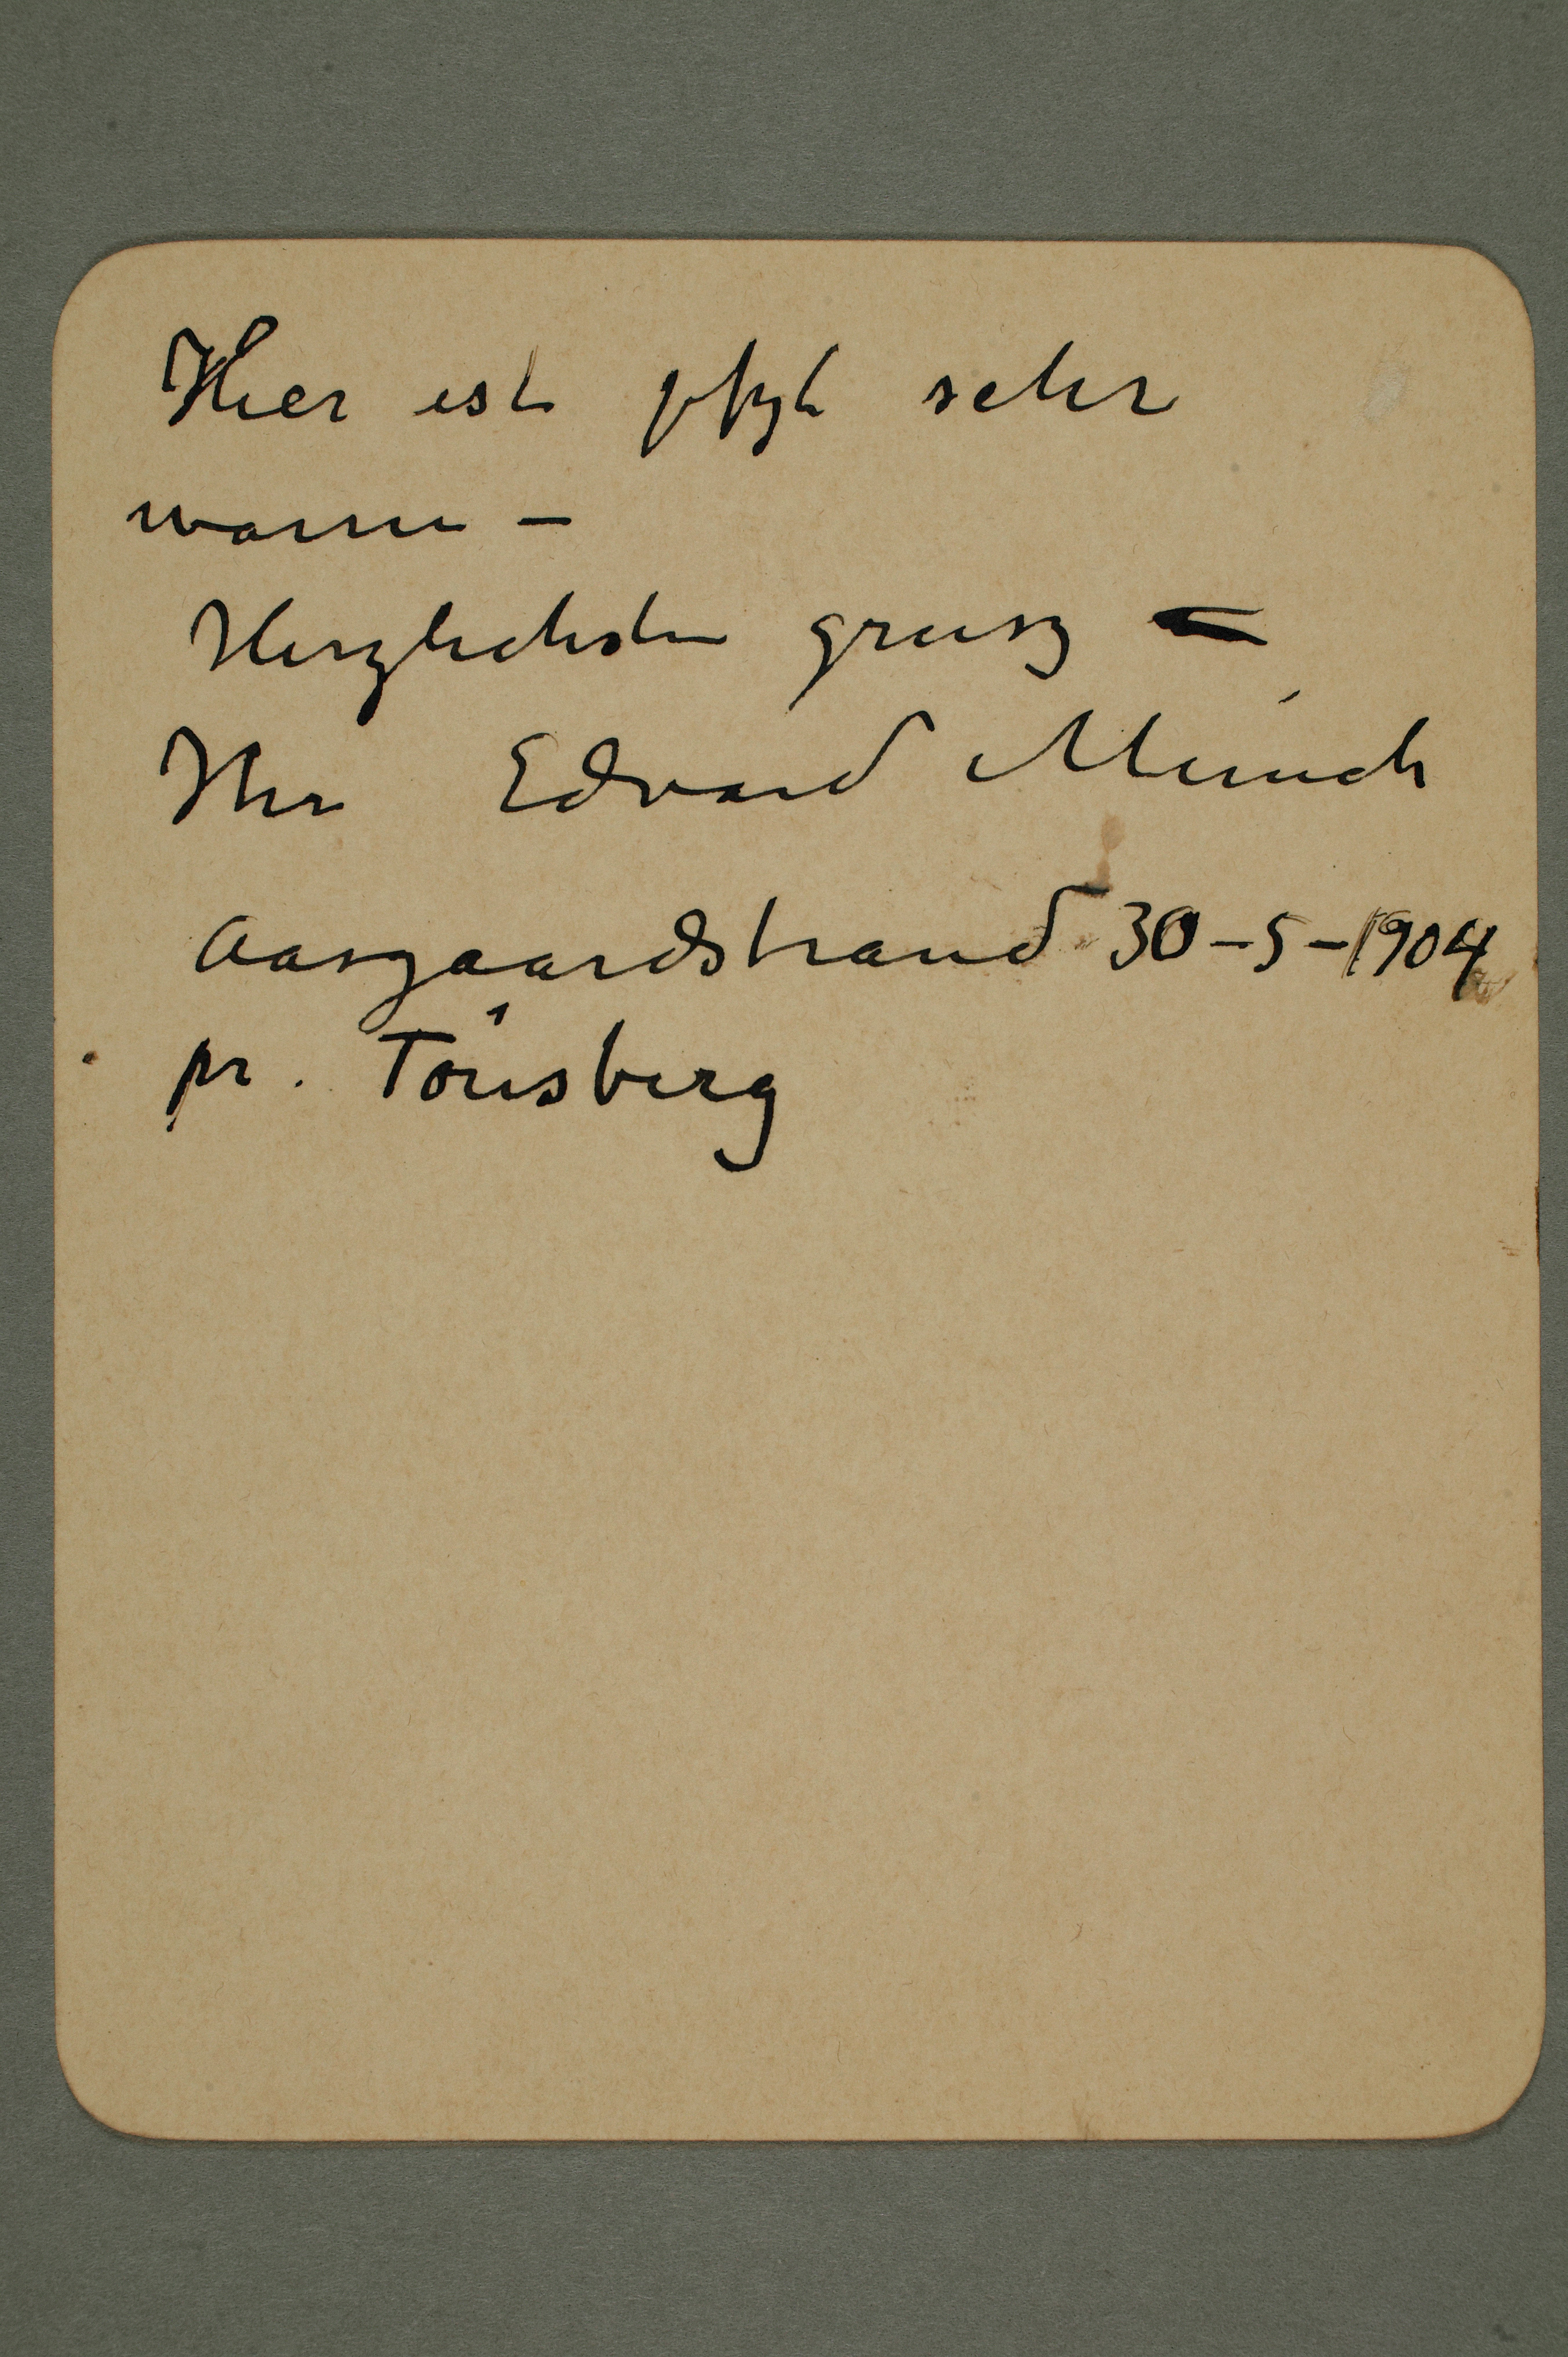 Hier ist jetzt sehr
warm –
Herzlichsten grusz –
Ihr Edvard Munch
Aasgaardstrand 30-5-1904
pr. Tönsberg